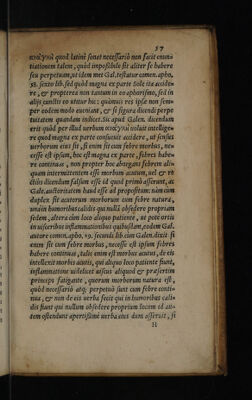 57
πολὺ quod latinè sonet necessariò non facit enun-
tiationem talem, quòd impossibile sit aliter se habere
seu perpetuam, vt idem met Gal. testatur comen. apho.
sexto lib. sed quòd magna ex parte Sole ita accide-
re, & propterea non tantum in eo aphorismo, sed in
alijs constito eo vtitur hic: quamuis res ipsæ non sem-
per eodem modo eueniant, & si figura dicendi perpe-
tuitatem quandam indicet. Sic apud Galen. dicendum
erit quòd per illud verbum voluit intellige-
re quod magna ex parte consueuit accidere, vt sensus
verborum eius sit, si enim sit cum febre morbus, ne-
cesse est ipsum, hoc est magna ex parte, febres habe-
re continuæ, non propter hoc abnegans febrem ali-
quam intermittentem esse morbum acutum, vel & re
tius dicendum falsum esse id quod primò asserunt, ex
Gale. auctoritatem haud esse ad propositum: nam cum
duplex sit acutorum morborum cum febre natura,
vnius in humoribus calidis qui nulla obsidere propriam
sedem, altera cum loco aliquo patiente, vt pote ortis
in visceribus inflammationibus quibusdam, eodem Gal.
autore comen. apho. 19. secundi lib. cum Galen. dixit si
enim sit cum febre morbus, necesse est ipsum febres
habere continuæ, talis enim est morbus acutus, de eis
intellexit morbis acutis, qui aliquo loco patiente fiunt,
inflammatione videlicet alicuius aliquod & præsertim
princeps fatigante, quorum morborum natura est,
quòd necessariò atq; perpetuò sunt cum febre conti-
nua, & non de eis verba fecit qui in humoribus cali-
dis fiunt qui nullum obsidere proprium locum id au-
tem ostendunt apertissimè verba eius dum asserit, si
H